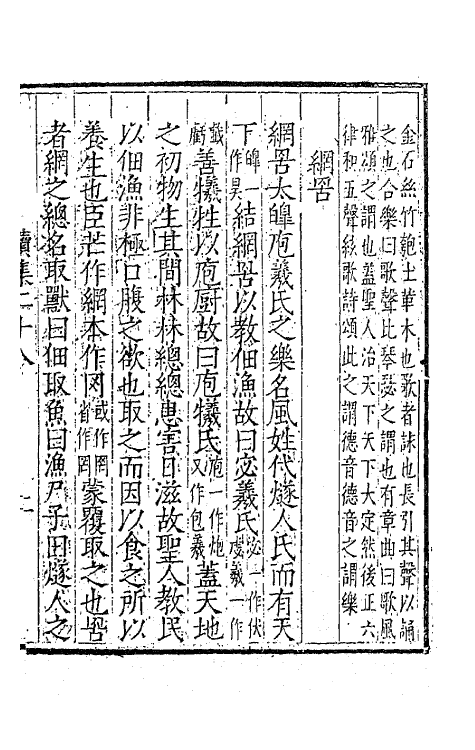 金石絲竹匏土革木也歌者詠也長引其聲以誦
之也合樂曰歌聲比琴瑟之謂也有章曲曰歌風
雅頌之謂也蓋聖人治天下天下大定然後正六
律和五聲絃歌詩頌此之謂德音德音之謂樂
網罟
網罟太皥庖羲氏之樂名風姓代燧人氏而有天
下皥一作昊結網罟以教佃漁故曰宓羲氏宓一作伏戲羲一作
戱善犧牲以庖厨故曰庖犧氏庖一作炮又作包羲蓋天地
之初物生其間林林總總患害日滋故聖人教民
以佃漁非極口腹之欲也取之而因以食之所以
養生也臣芒作網本作网或作罔省作罓蒙覆取之也罟
者網之總名取獸曰佃取魚曰漁尸子曰燧人之
續集二十八